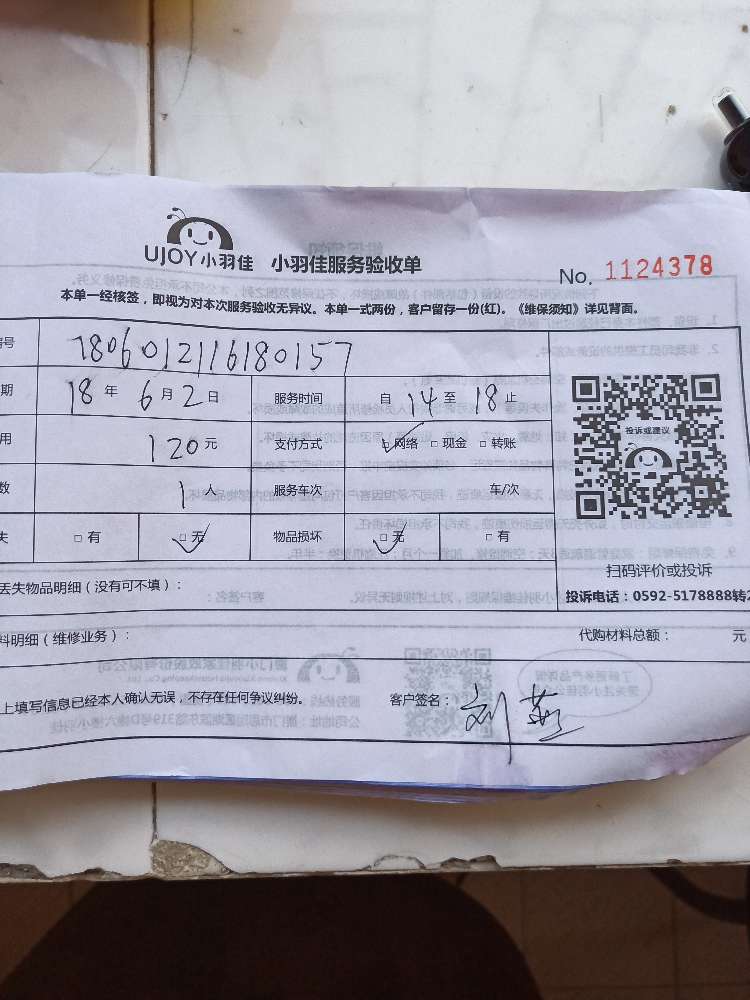 UJOY小羽佳 小羽佳服务验收单
No. 1124378
本单一经核签，即视为对本次服务验收无异议。本单一式两份，客户留存一份(红)。《维保须知》详见背面。
号 1806012116180157
期 18年6月2日 服务时间 自14至18止
用 120元 支付方式 ☑网络 □现金 □转账
数 1人 服务车次 车/次
失 □有 ☑无 物品损坏 ☑无 □有
投诉或建议
扫码评价或投诉
丢失物品明细（没有可不填）： 投诉电话：0592-5178888转2
料明细（维修业务）： 代购材料总额： 元
上填写信息已经本人确认无误，不存在任何争议纠纷。 客户签名：刘燕